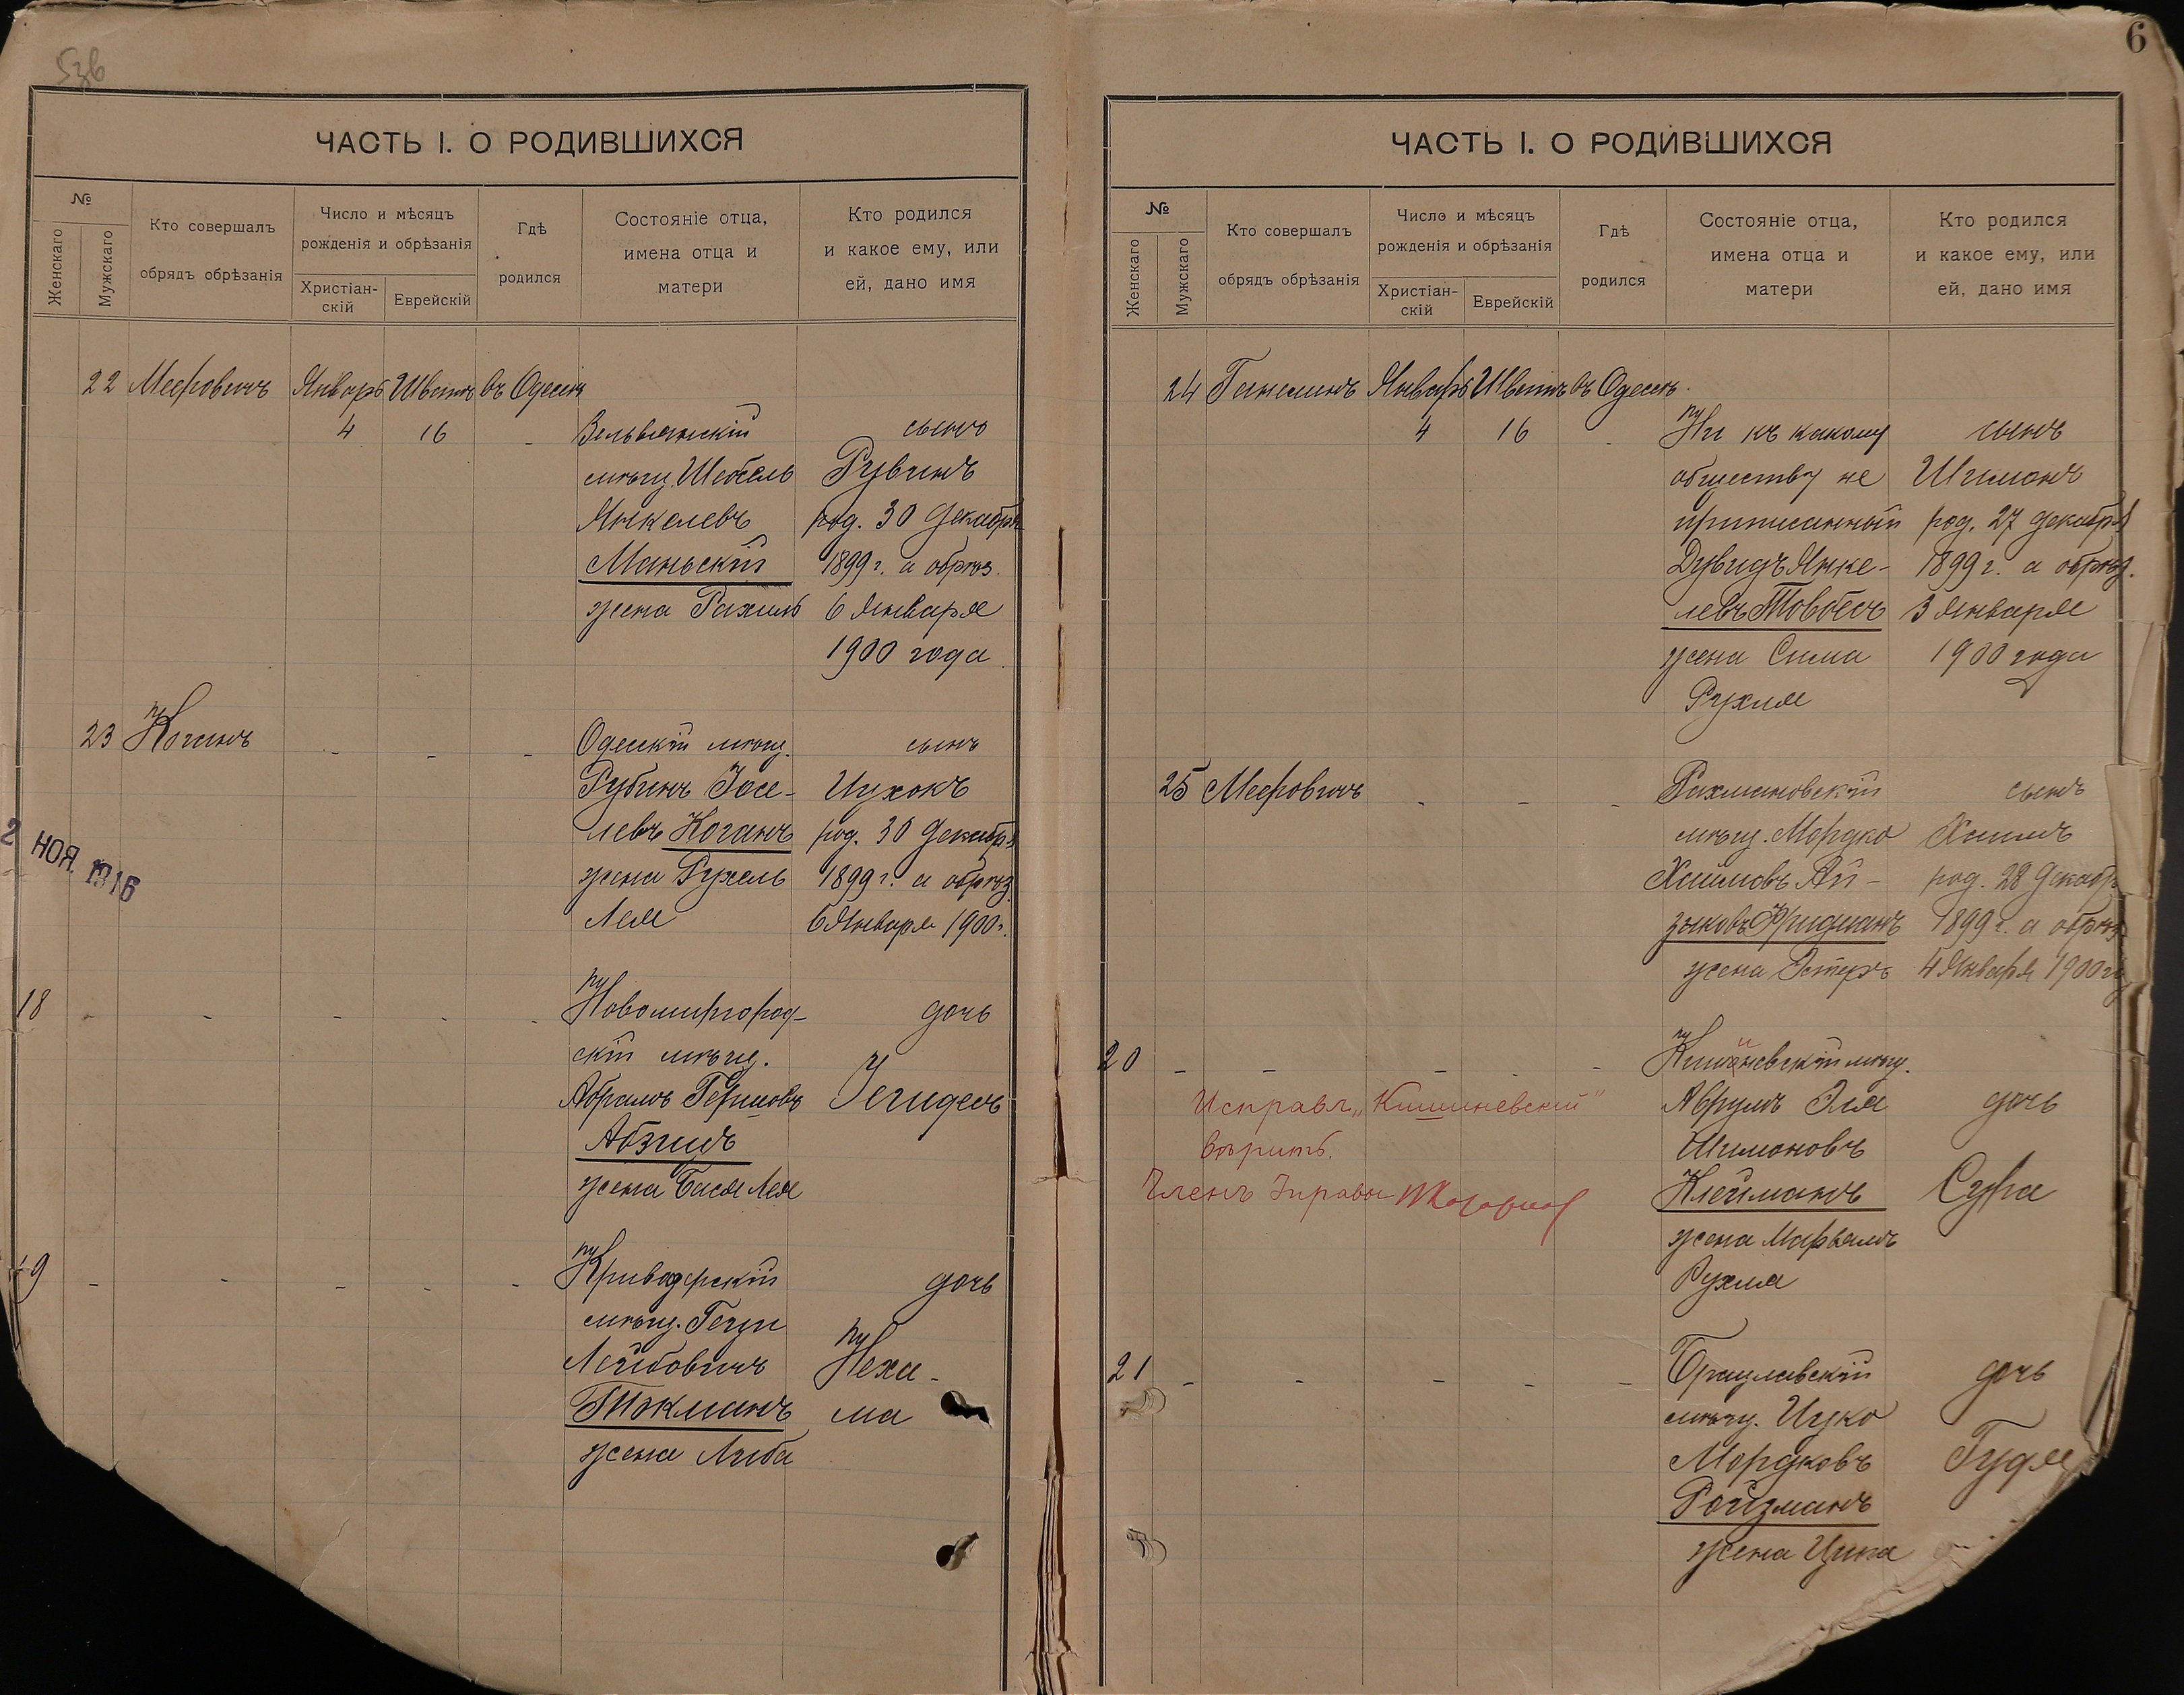 6
ЧАСТЬ I. О РОДИВШИХСЯ
№
Женскаго
Мужскаго
Кто совершалъ
обрядъ обрѣзанія
Число и мѣсяцъ
рожденія и обрѣзанія
Христіан-
скій
Еврейскій
Гдѣ
родился
Состояніе отца,
имена отца и
матери
Кто родился
и какое ему, или
ей, дано имя
22 Мееровичъ Январь Шватъ въ Одессѣ
4 16 - сынъ
мѣщ. Рувинъ
Янкелевъ род. 30 Декабря
Маньскій 1899 г. а обрѣз.
жена Рахиль 6 Января
1900 года
23 Коганъ - - - Одесскій мѣщ. сынъ
Рубинъ Іосе- Ицхокъ
левъ Коганъ род. 30 Декабря
жена Рухель 1899 г. а обрѣз.
Лея 6 Января 1900 г.
2 НОЯ. 1916
18 - - - - - Новомиргород- дочь
скій мѣщ.
Абрамъ Гершовъ
жена Бася Лея
19 - - - - - дочь
мѣщ.
Лейбовичъ Неха-
Токманъ ма
жена Либа
ЧАСТЬ I. О РОДИВШИХСЯ
№
Женскаго
Мужскаго
Кто совершалъ
обрядъ обрѣзанія
Число и мѣсяцъ
рожденія и обрѣзанія
Христіан-
скій
Еврейскій
Гдѣ
родился
Состояніе отца,
имена отца и
матери
Кто родился
и какое ему, или
ей, дано имя
24 Январь Шватъ въ Одессѣ
4 16 - Ни къ какому сынъ
обществу не Шимонъ
приписанный род. 27 Декабря
Дувидъ Янке- 1899 г. а обрѣз.
левъ Товбесъ 3 Января
жена Сима 1900 года
Рухля
25 Мееровичъ - - - Рахмановскій сынъ
мѣщ. Мордко Хаимъ
Хаимовъ Ай- род. 28 Декабр
зыковъ Фридманъ 1899 г. а обрѣз.
жена Эстеръ 4 Января 1900 г.
20 - - - - - Кишиневскій мѣщ.
Исправл. „Кишиневскій" Аврумъ Эля дочь
вѣрить. Шимоновъ
Членъ Управы Клейманъ Сура
жена Марьямъ
Рухля
21 - - - - - Брацлавскій дочь
мѣщ. Ицко
Мордковъ Гудя
Ройзманъ
жена Ципа